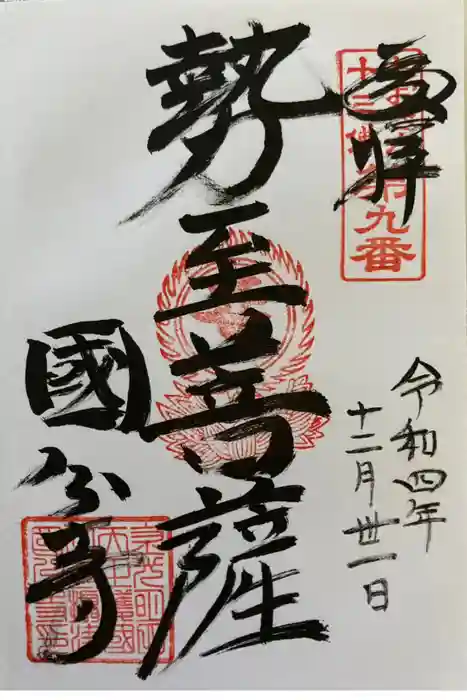 奉拝
十三佛
第九番
勢至菩薩
國分寺
令和四年
十二月丗一日